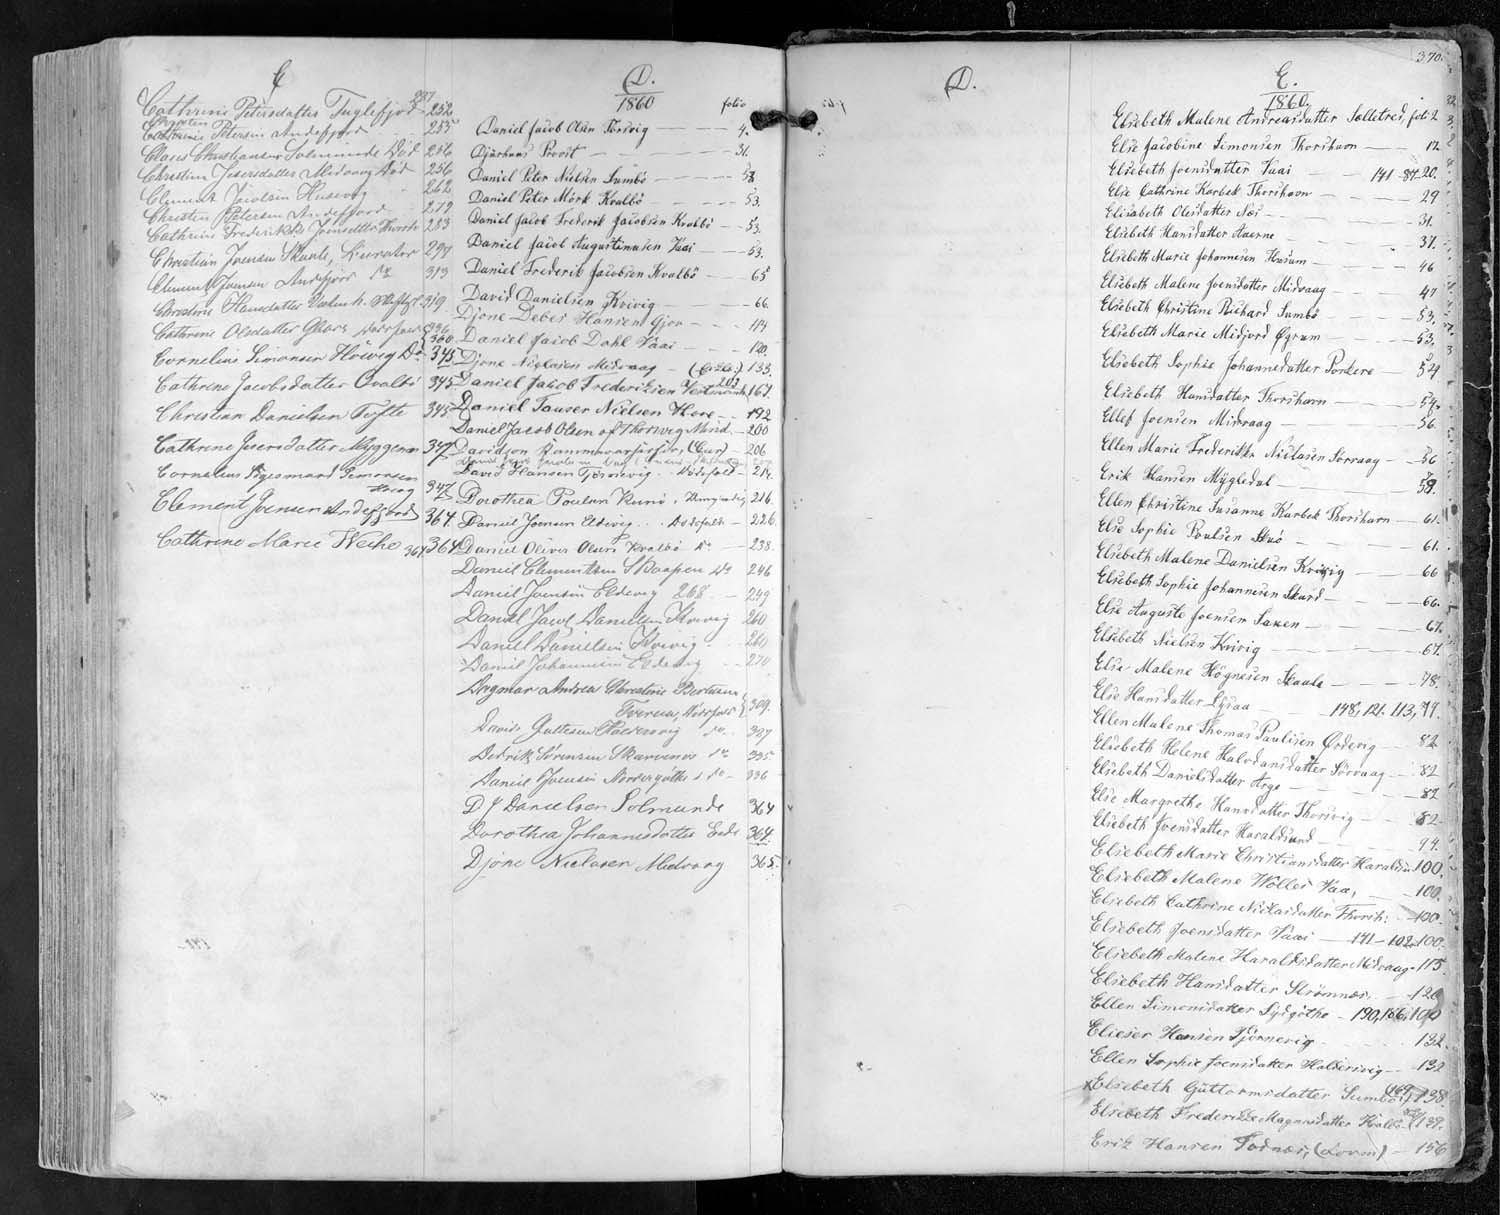 C
Cathrine Petersdatter Fuglefjord 237 252
Christen
Cathrine Petersen Andefjord 255
Claus Christiansen Solmunde Død 256
Christine Joensdatter Midvaag Død 256
Clement Jacobsen Husevig 262
Christen Petersen Andefjord 279
Cathrine Frederikke Joensdatter 283
Christian Joensen Skaale, Kurator 297
Clement Joensen Andefjord Do 313
Christine Hansdatter 319.
Cathrine Olsdatter Dødsfald 336 360
Cornelius Simonsen Hösvig Do 345
Cathrine Jacobsdatter Qvalbö 345
Christian Danielsen Tofte 345
Cathrine Joensdatter Myggenæs 347
Cornelius Sigismund Simonsen
Hösvig 347
Clement Joensen Andefjord 364.
Cathrine Marie Weihe 364 364
D.
1860 folio
Daniel Jacob Olsen Thorsvig — — — 4.
Djurhuus Provst — — — — 31.
Daniel Peter Nielsen Sumbö — — 58
Daniel Peter Mörk Kvalbö — — 53.
Daniel Jacob Frederik Jacobsen Kvalbö — 53.
Daniel Jacob Augustinusen Vaai — — 53.
Daniel Frederik Jacobsen Kvalbö — 65
David Danielsen Kvivig — — — 66.
Djone Debes Hansen Gjov — — — 114
Daniel Jacob Dahl Vaai — — — 120.
Djone Niclasen Midvaag — 135.
Daniel Jacob Frederiksen Vestmanh 203 167.
Daniel Tauser Nielsen Hove — — 192
Daniel Jacob Olsen af Thorsvig Mind. — 200
Davidson 206
David Hansen Tjörnevig . Dødsfald — 214.
Dorothea Poulsen Kunö, Umyndig 216.
Daniel Joensen Eldevig . . Dødsfald — 226.
Daniel Oliver Olsen Kvalbö Do — 238.
Daniel Clementsen Skaapen Do 246
Daniel Joensen Eldevig 268. — 249
Daniel Jacob Danielsen Kvivig 260
Daniel Danielsen Kvivig . . 260
Daniel Johannesen Eldevig — 270
Dagmar Andrea Christine Bertha
Tveraa, Dødsfald } 309.
David Guttesen Haldersvig do. . 327
Dedrik Sörensen Skarvenæs do 335
Daniel Joensen Nordregöthe do — 336
D J Danielsen Solmunde 364
Dorothea Johannesdatter Eide 364.
Djone Niclasen Midvaag 365.
D.
370.
E.
1860
Elsebeth Malene Andreasdatter Selletræd, foli 2
Else Jacobine Simonsen Thorshavn — — 12
Elisebeth Joensdatter Vaai — — 141-87-20.
Else Cathrine Karbek Thorshavn — — 29
Elisabeth Olesdatter Næs — — — 31.
Elsebeth Hansdatter — — — 37.
Elsebeth Marie Johannesen Husum — — 46
Elsebeth Malene Joensdatter Midvaag — — 47
Elsebeth Christine Richard Sumbö — — 53.
Elsebeth Marie Midjord Øgrum — — 53.
Elsebeth Sophie Johannesdatter Porkere — — 54
Elsebeth Hansdatter Thorshavn — — — 54.
Ellef Joensen Midvaag — — — 56.
Ellen Marie Frederikke Niclasen Sörvaag — — 56
Erik Hansen Mygledal — — — 58.
Ellen Christine Susanne Karbek Thorshavn — 61.
Else Sophie Poulsen Skuö — — — 61.
Elsebeth Malene Danielsen Kvivig — — 66
Elsebeth Sophie Johannesen Skard — — 66.
Else Auguste Joensen Saxen — — — 67.
Elsebeth Nielsen Kvivig — — — 67.
Else Malene Högnesen Skaale — — — 78.
Else Hansdatter Lysaa — — 148, 121. 113, 79.
Ellen Malene Thomas Paulisen Ørdevig — 82
Elsebeth Helene Halvdansdatter Sörvaag — 82
Elsebeth Danielsdatter Arge — — — 82
Else Margrethe Hansdatter Thorsvig — — 82
Elsebeth Joensdatter Haraldsund — — 94.
Elsebeth Marie Christiansdatter Haraldsu. 100.
Elsebeth Malene Wolles Vaa, — — 100.
Elsebeth Cathrine Niclasdatter Thorsh: — 100
Elsebeth Joensdatter Vaai — 141 — 102. 100.
Elsebeth Malene Haraldsdatter Midvaag — 115.
Elsebeth Hansdatter Strömnæs, — — 126
Ellen Simonsdatter Sydgöthe — 190, 166,
Elieser Hansen Tjörnevig — — 132.
Ellen Sophie Joensdatter Haldersvig — — 132
x Elsebeth Guttormsdatter Sumbö 169 138
Elsebeth Frederikke Magnusdatter Kvalbö 139.
Erik Hansen Todnæs, (Lovm) — 156